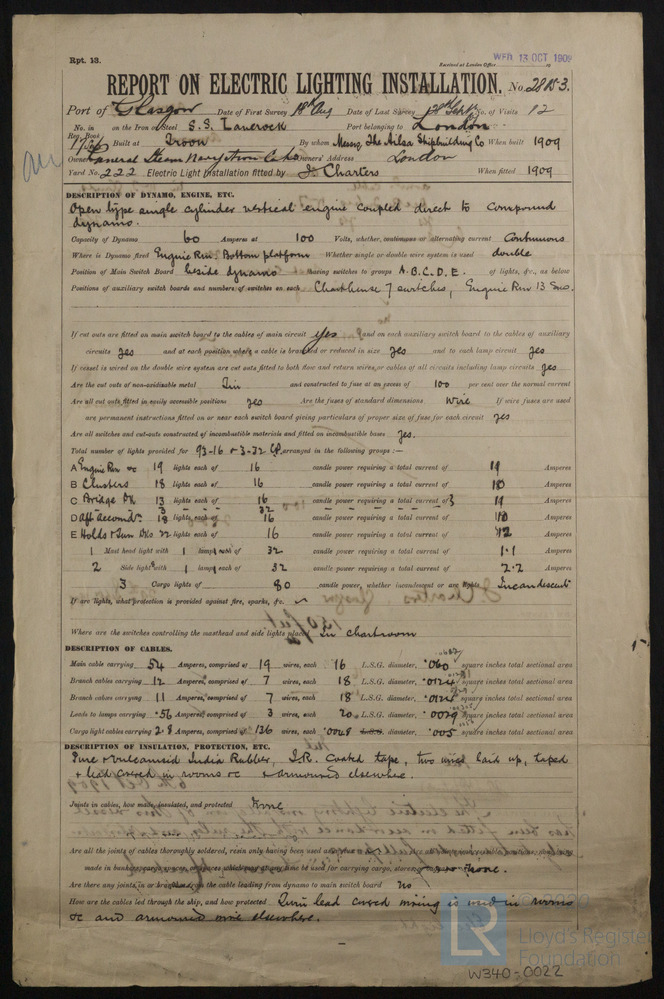 Rpt. 13.
Received at London Office WED 13 OCT 1909
REPORT ON ELECTRIC LIGHTING INSTALLATION. No.
Port of Glasgow Date of First Survey 18th Aug Date of Last Survey No. of Visits 12
No. in Reg. Book on the Iron or Steel S.S. Lanerock Port belonging to London
Built at Troon By whom Messrs The Ailsa Shipbuilding Co When built 1909
Owners General Steam Navigation Co Ld Owners' Address London
Yard No. 222 Electric Light Installation fitted by J. Charters When fitted 1909
DESCRIPTION OF DYNAMO, ENGINE, ETC.
Open type single cylinder vertical engine coupled direct to compound
dynamo.
Capacity of Dynamo 60 Amperes at 100 Volts, whether continuous or alternating current Continuous
Where is Dynamo fixed Engine Rm Bottom platform Whether single or double wire system is used double
Position of Main Switch Board beside dynamo having switches to groups A.B.C.D.E. of lights, &c., as below
Positions of auxiliary switch boards and numbers of switches on each Charthouse 7 switches, Engine Rm 13 Sws.
If cut outs are fitted on main switch board to the cables of main circuit yes and on each auxiliary switch board to the cables of auxiliary
circuits yes and at each position where a cable is branched or reduced in size yes and to each lamp circuit yes
If vessel is wired on the double wire system are cut outs fitted to both flow and return wires or cables of all circuits including lamp circuits yes
Are the cut outs of non-oxidizable metal Tin and constructed to fuse at an excess of 100 per cent over the normal current
Are all cut outs fitted in easily accessible positions yes Are the fuses of standard dimensions wire If wire fuses are used
are permanent instructions fitted on or near each switch board giving particulars of proper size of fuse for each circuit yes
Are all switches and cut-outs constructed of incombustible materials and fitted on incombustible bases yes.
Total number of lights provided for 93-16 & 3-32 CP. arranged in the following groups :—
A Engine Rm &c 19 lights each of 16 candle power requiring a total current of 11 Amperes
B Clusters 18 lights each of 16 candle power requiring a total current of 10 Amperes
C Bridge Dk 13 lights each of 16 candle power requiring a total current of 11 Amperes
3 32
D Aft Accomdn 18 lights each of 16 candle power requiring a total current of 10 Amperes
E Holds & Tun Dks 22 lights each of 16 candle power requiring a total current of 12 Amperes
1 Mast head light with 1 lamps each of 32 candle power requiring a total current of 1.1 Amperes
2 Side lights with 1 lamps each of 32 candle power requiring a total current of 2.2 Amperes
3 Cargo lights of 80 candle power, whether incandescent or arc lights Incandescent
If arc lights, what protection is provided against fire, sparks, &c.
Where are the switches controlling the masthead and side lights placed In chartroom
DESCRIPTION OF CABLES.
Main cable carrying 54 Amperes, comprised of 19 wires, each 16 L.S.G. diameter, .060 square inches total sectional area
Branch cables carrying 12 Amperes, comprised of 7 wires, each 18 L.S.G. diameter, .0124 square inches total sectional area
Branch cables carrying 11 Amperes, comprised of 7 wires, each 18 L.S.G. diameter, .0124 square inches total sectional area
Leads to lamps carrying .56 Amperes, comprised of 3 wires, each 20 L.S.G. diameter, .0029 square inches total sectional area
Cargo light cables carrying 2.8 Amperes, comprised of 136 wires, each .0068 L.S.G. diameter, .005 square inches total sectional area
DESCRIPTION OF INSULATION, PROTECTION, ETC.
Pure & vulcanised India Rubber, I.R. Coated tape, two wires laid up, taped
& lead covered in rooms &c & armoured elsewhere.
Joints in cables, how made, insulated, and protected None
Are all the joints of cables thoroughly soldered, resin only having been used
made in bunkers, cargo spaces, or spaces which may at any time be used for carrying cargo, stores None.
Are there any joints in or branches from the cable leading from dynamo to main switch board No
How are the cables led through the ship, and how protected Twin lead covered wiring is used in rooms
&c and armoured wire elsewhere.
LR
© 2020
Lloyd's Register
Foundation
W340-0022